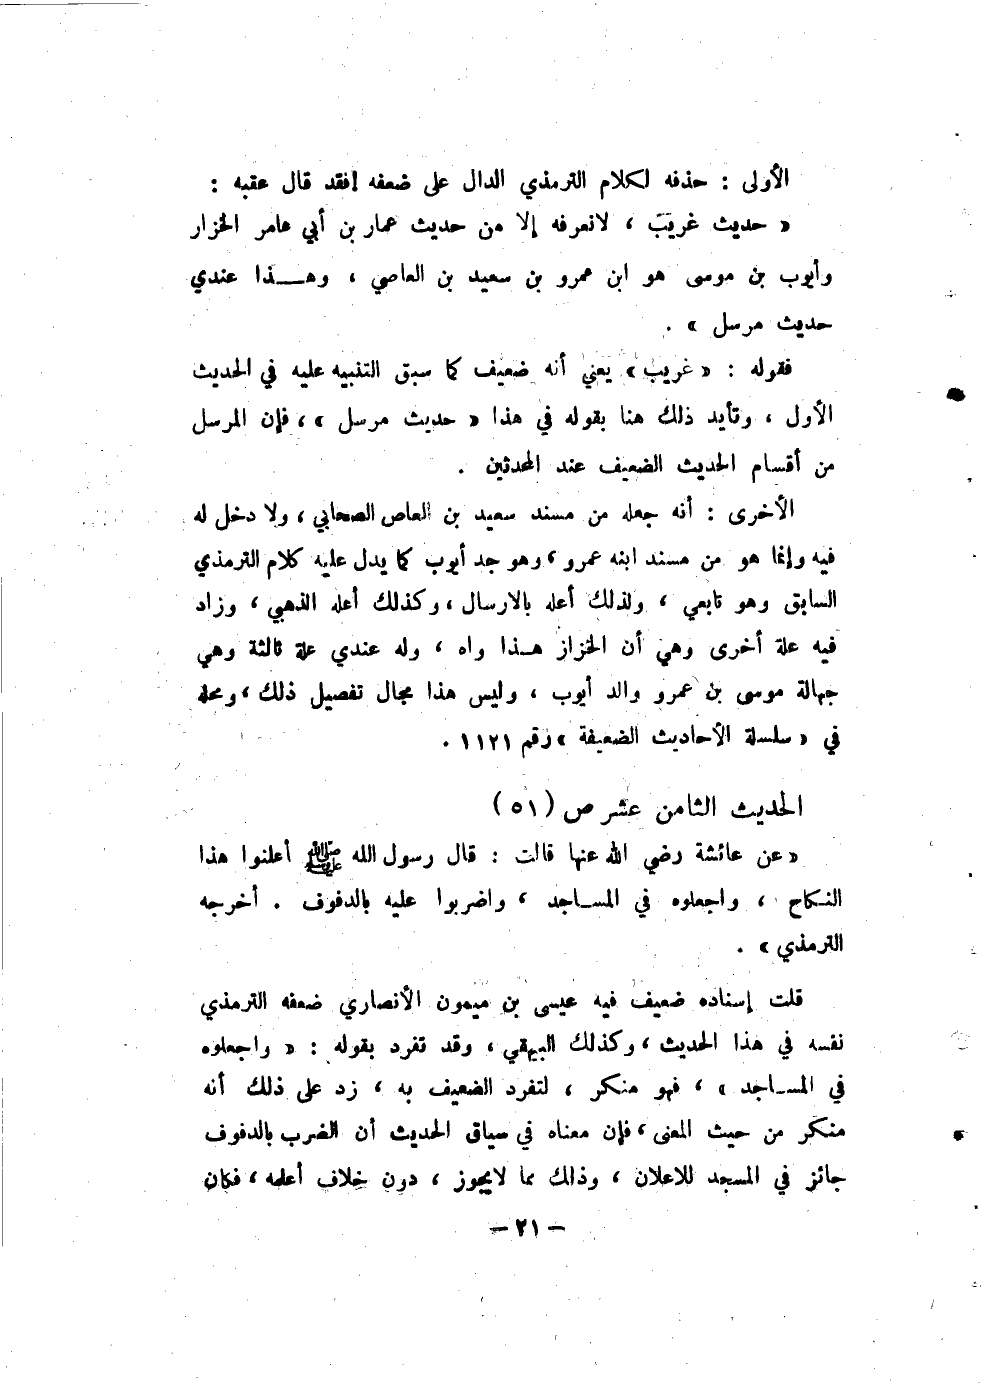 الأولى : حذفه لكلام الترمذي الدال على ضعفه فقد قال عقبه :
« حديث غريب ، لانعرفه إلا من حديث عمار بن أبي عامر الخزار
وأيوب بن موسى هو ابن عمرو بن سعيد بن العاصي ، وهـذا عندي
حديث مرسل » .
فقوله : « غريب » يعني أنه ضعيف كما سبق التنبيه عليه في الحديث
الأول ، وتأيد ذلك هنا بقوله في هذا « حديث مرسل » ، فإن المرسل
من أقسام الحديث الضعيف عند المحدثين .
الأخرى : أنه جعله من مسند سعيد بن العاص الصحابي ، ولا دخل له
فيه وإنما هو من مسند ابنه عمرو ، وهو جد أيوب كما يدل عليه كلام الترمذي
السابق وهو تابعي ، ولذلك أعله بالارسال ، وكذلك أعله الذهبي ، وزاد
فيه علة أخرى وهي أن الخزاز هـذا واه ، وله عندي علة ثالثة وهي
جهالة موسى بن عمرو والد أيوب ، وليس هذا مجال تفصيل ذلك ، ومحله
في « سلسلة الأحاديث الضعيفة » رقم ١١٢١ .
الحديث الثامن عشر ص (٥١)
« عن عائشة رضي الله عنها قالت : قال رسول الله ﷺ أعلنوا هذا
النكاح ، واجعلوه في المسـاجد ، واضربوا عليه بالدفوف . أخرجه
الترمذي » .
قلت إسناده ضعيف فيه عيسى بن ميمون الأنصاري ضعفه الترمذي
نفسه في هذا الحديث ، وكذلك البيهقي ، وقد تفرد بقوله : « واجعلوه
في المسـاجد » ، فهو منكر ، لتفرد الضعيف به ، زد على ذلك أنه
منكر من حيث المعنى ، فإن معناه في سياق الحديث أن الضرب بالدفوف
جائز في المسجد للاعلان ، وذلك مما لايجوز ، دون خلاف أعلمه ، فكان
— ٢١ —